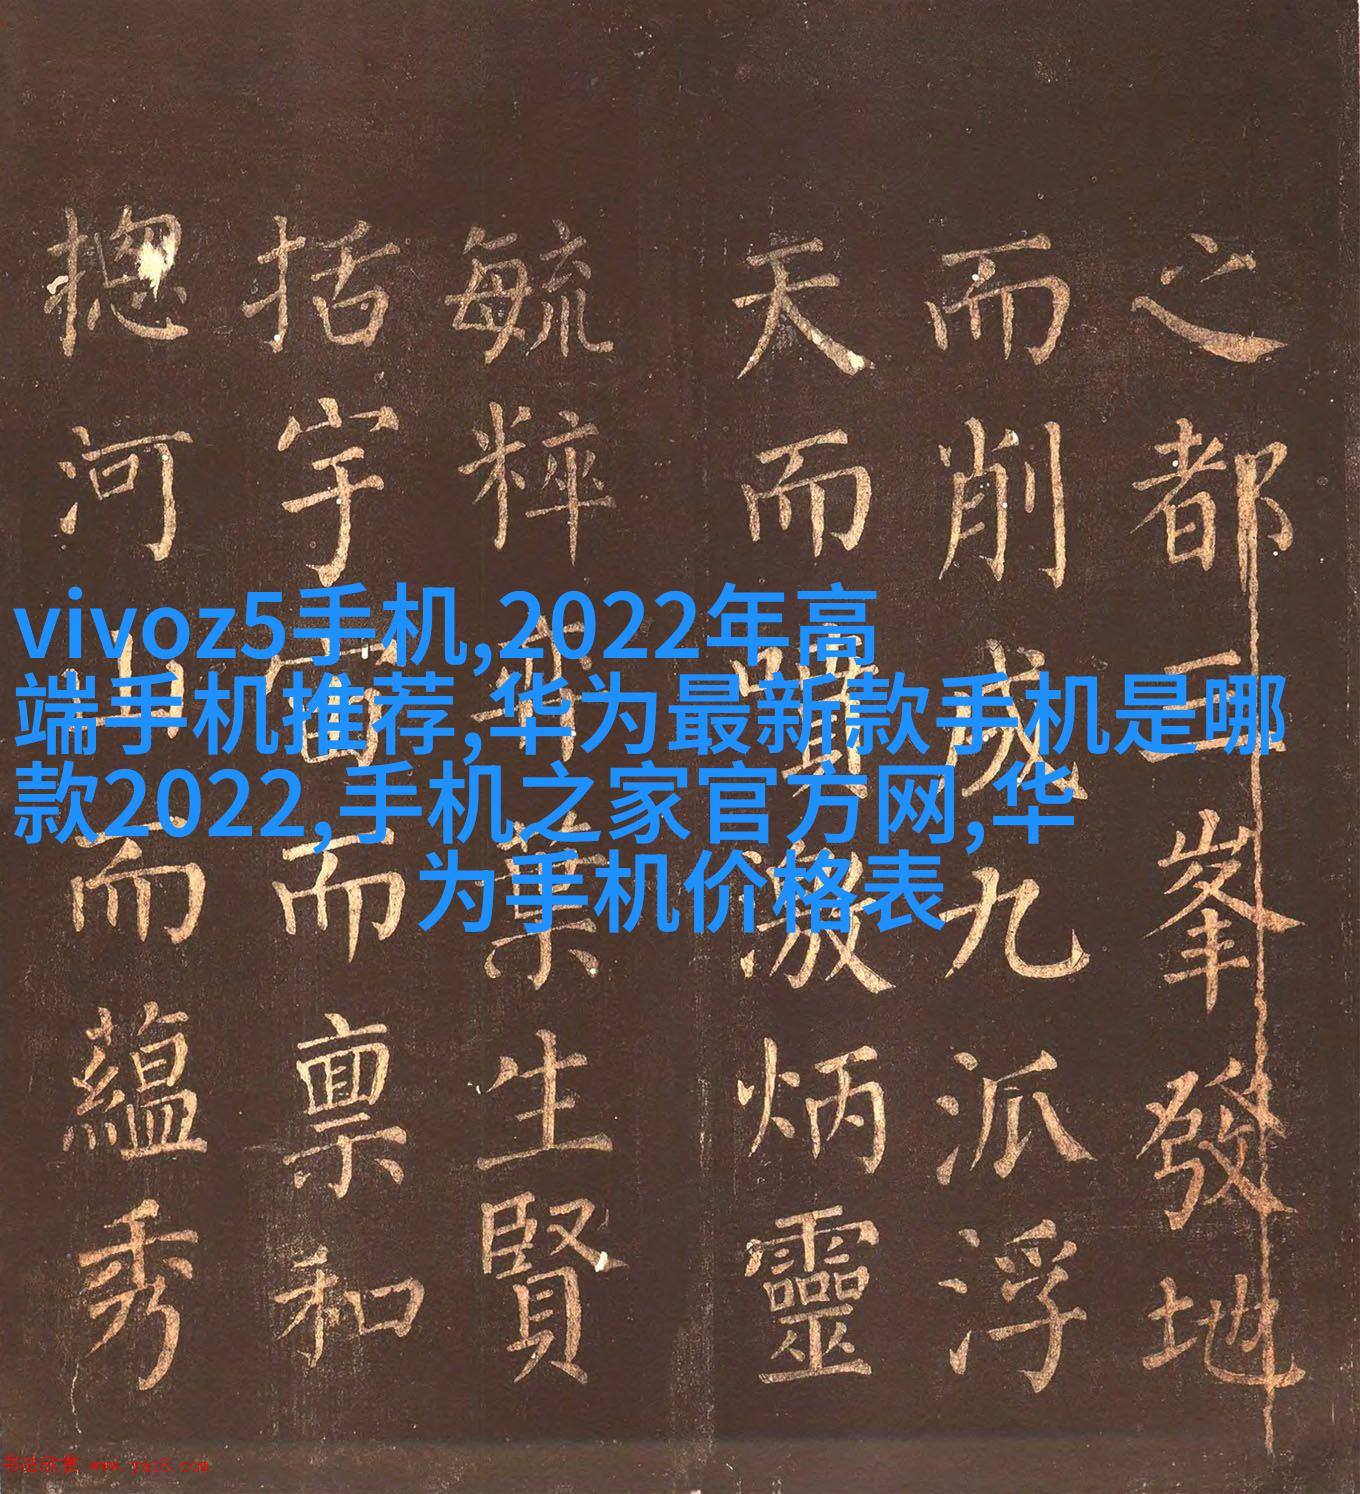 之都三峯發地
而削成九派浮
天而噴激炳靈
毓粹葉生賢
括宇宙而禀和
揔河山而蘊秀
vivoz5手机,2022年高
端手机推荐,华为最新款手机是哪
款2022,手机之家官方网,华
为手机价格表
书法欣赏 www.yac8.com